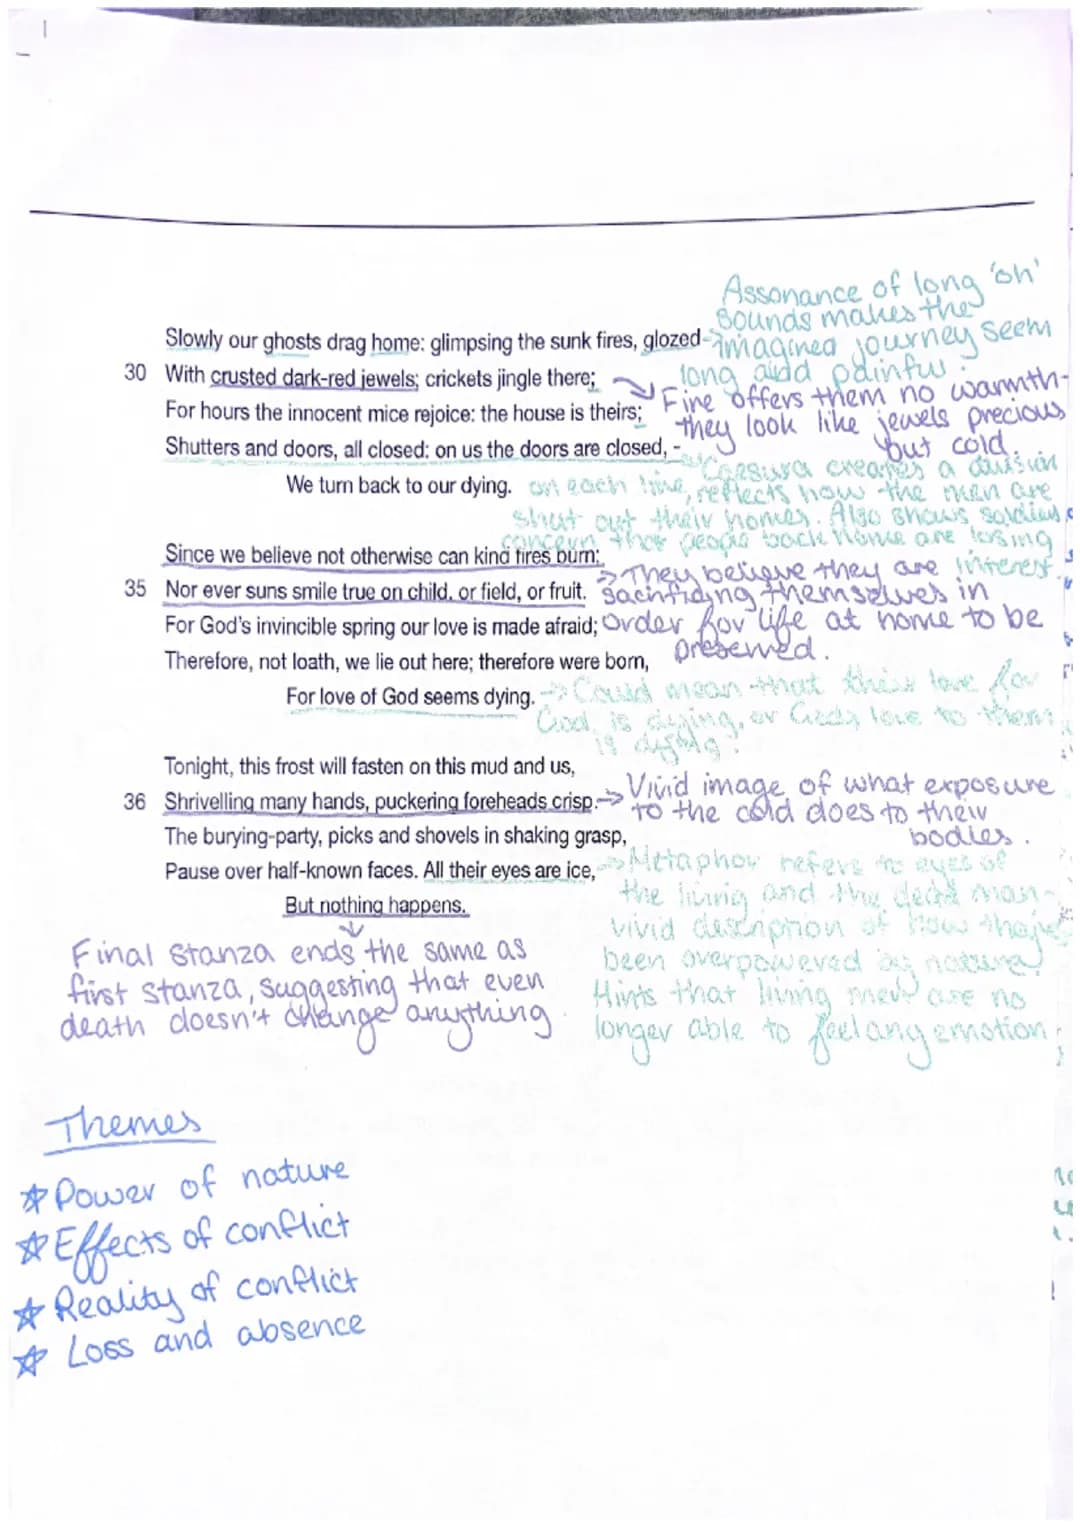 Assonance of long 'oh'
sounds makes the
Slowly our ghosts drag home: glimpsing the sunk fires, glozed
imagined journey seem
long and painful.
30 With crusted dark-red jewels; crickets jingle there;
Fire offers them no warmth-
For hours the innocent mice rejoice: the house is theirs;
they look like jewels precious
but cold.
Shutters and doors, all closed: on us the doors are closed, -
Caesura creates a division
We turn back to our dying.
on each line, reflects how the men are
shut out their homes. Also shows soldiers
concern that people back home are losing
interest.
Since we believe not otherwise can kind fires burn;
They believe they are
35 Nor ever suns smile true on child, or field, or fruit.
sacrificing themselves in
For God's invincible spring our love is made afraid;
order for life at home to be
preserved.
Therefore, not loath, we lie out here; therefore were born,
For love of God seems dying.
Could mean that their love for
God is dying, or God's love to them
is dying.
Tonight, this frost will fasten on this mud and us,
36 Shrivelling many hands, puckering foreheads crisp.
Vivid image of what exposure
to the cold does to their
bodies.
The burying-party, picks and shovels in shaking grasp,
Pause over half-known faces. All their eyes are ice,
But nothing happens.
Metaphor refers to eyes of
the living and the dead man-
vivid description of how
been overpowered by nature
Hints that living men are no
longer able to feel any emotion
Final stanza ends the same as
first stanza, suggesting that even
death doesn't change anything.
Themes
Power of nature
Effects of conflict
Reality of conflict
Loss and absence